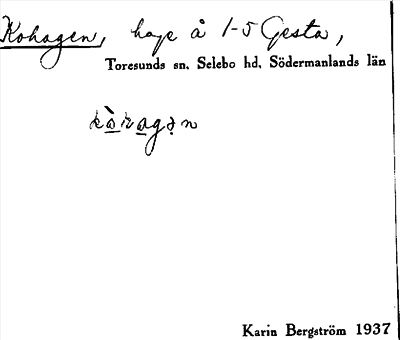 Kohagen, hage å 1-5 Gesta,
Toresunds sn. Selebo hd. Södermanlands län
Karin Bergström 1937